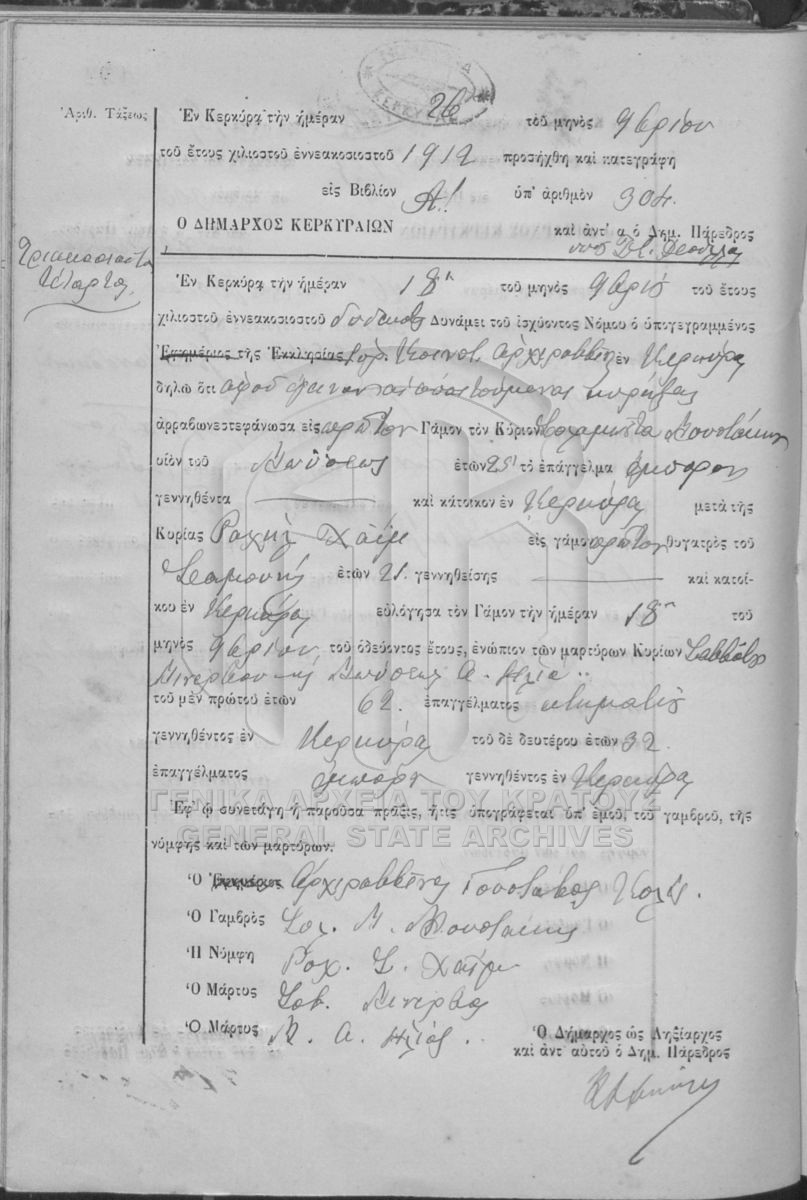 Ἀριθ. Τάξεως
Ἐν Κερκύρᾳ τὴν ἡμέραν 26 τοῦ μηνὸς 9βρίου
τοῦ ἔτους χιλιοστοῦ ἐννεακοσιοστοῦ 1912 προσήχθη καὶ κατεγράφη
εἰς Βιβλίον Α! ὑπ' ἀριθμὸν 304.
Ο ΔΗΜΑΡΧΟΣ ΚΕΡΚΥΡΑΙΩΝ καὶ ἀντ' α ὁ Δημ. Πάρεδρος
τριακοσιοστὴ
τετάρτη.
Ἐν Κερκύρᾳ τὴν ἡμέραν 18η τοῦ μηνὸς 9βρίου τοῦ ἔτους
χιλιοστοῦ ἐννεακοσιοστοῦ δωδεκάτου Δυνάμει τοῦ ἰσχύοντος Νόμου ὁ ὑπογεγραμμένος
Ἐφημέριος τῆς Ἐκκλησίας Ἰσρ. Κοινοτ. Ἀρχιραββῖνος ἐν Κερκύρᾳ
δηλῶ ὅτι ἀφοῦ ἐγένοντο αἱ ἀπαιτούμεναι κηρύξεις
ἀρραβωνεστεφάνωσα εἰς πρῶτον Γάμον τὸν Κύριον Σολομῶντα Μουστάκην
υἱὸν τοῦ Μωϋσέως ἐτῶν 25 τὸ ἐπάγγελμα ἔμπορον
γεννηθέντα ——— καὶ κάτοικον ἐν Κερκύρᾳ μετὰ τῆς
Κυρίας Ραχὴλ Χάϊμ εἰς γάμον πρῶτον θυγατρὸς τοῦ
Σαμουὴλ ἐτῶν 21. γεννηθείσης ——— καὶ κατοί-
κου ἐν Κερκύρᾳ εὐλόγησα τὸν Γάμον τὴν ἡμέραν 18η τοῦ
μηνὸς 9βρίου τοῦ ὁδεύοντος ἔτους, ἐνώπιον τῶν μαρτύρων Κυρίων Σαββάτο
Μινερβο Μωϋσέως Α. Ηλιά
τοῦ μὲν πρώτου ἐτῶν 62. ἐπαγγέλματος κτηματίου
γεννηθέντος ἐν Κερκύρᾳ τοῦ δὲ δευτέρου ἐτῶν 32
ἐπαγγέλματος ἐμπόρου γεννηθέντος ἐν Κερκύρᾳ
ΓΕΝΙΚΑ ΑΡΧΕΙΑ ΤΟΥ ΚΡΑΤΟΥΣ
Ἐφ' ᾧ συνετάγη ἡ παροῦσα πρᾶξις, ἥτις ὑπογράφεται ὑπ' ἐμοῦ, τοῦ γαμβροῦ, τῆς
GENERAL STATE ARCHIVES
νύμφης καὶ τῶν μαρτύρων.
Ὁ Ἐφημέριος Ἀρχιραββῖνος
Ὁ Γαμβρὸς Σολ. Μ. Μουστάκης
Ἡ Νύμφη Ραχ. Σ. Χάϊμ
Ὁ Μάρτυς Σαβ. Μινερβο
Ὁ Μάρτυς Μ. Α. Ηλιάς.
Ὁ Δήμαρχος ὡς Ληξίαρχος
καὶ ἀντ' αὐτοῦ ὁ Δημ. Πάρεδρος